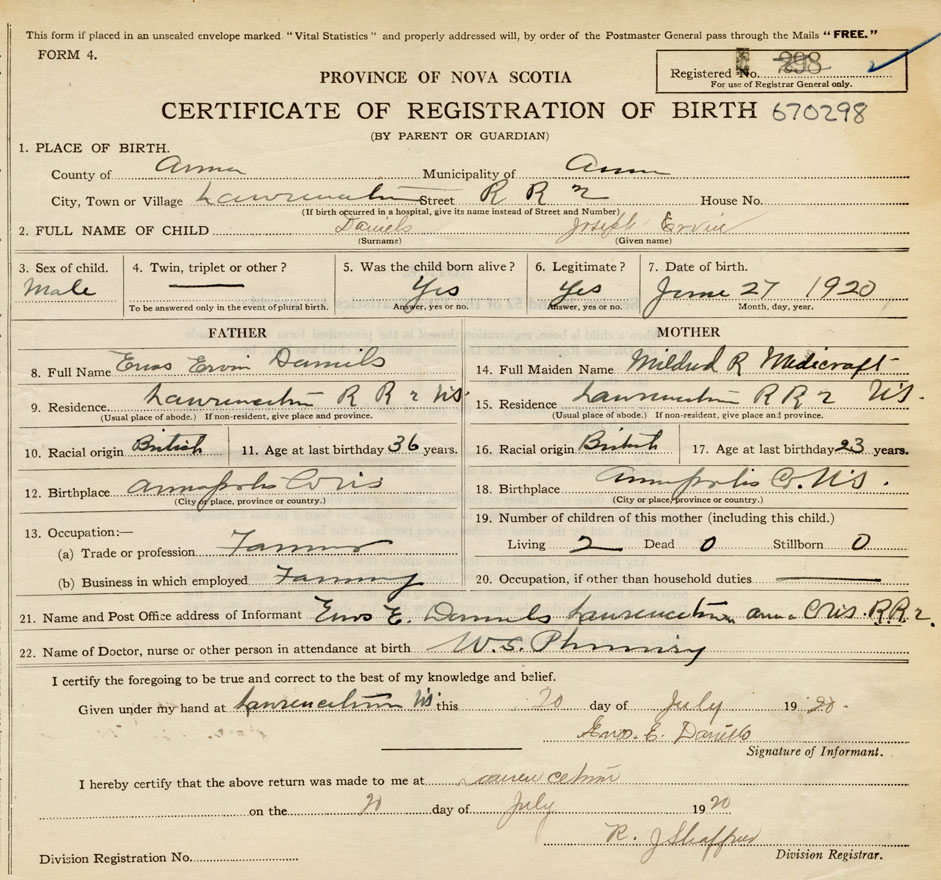 This form if placed in an unsealed envelope marked "Vital Statistics" and properly addressed will, by order of the Postmaster General pass through the Mails "FREE."
FORM 4.
Registered No. 298
For use of Registrar General only.
PROVINCE OF NOVA SCOTIA
CERTIFICATE OF REGISTRATION OF BIRTH 670298
(BY PARENT OR GUARDIAN)
1. PLACE OF BIRTH.
County of Anna Municipality of Anna
City, Town or Village Lawrencetown Street R R 2 House No.
(If birth occurred in a hospital, give its name instead of Street and Number)
2. FULL NAME OF CHILD Daniels Joseph Ervin
(Surname) (Given name)
3. Sex of child. 4. Twin, triplet or other? 5. Was the child born alive? 6. Legitimate? 7. Date of birth.
Male Yes Yes June 27 1920
To be answered only in the event of plural birth. Answer, yes or no. Answer, yes or no. Month, day, year.
FATHER MOTHER
8. Full Name Enos Ervin Daniels 14. Full Maiden Name Mildred R
9. Residence. Lawrencetown R R 2 NS. 15. Residence Lawrencetown R R 2 NS.
(Usual place of abode.) If non-resident, give place and province. (Usual place of abode.) If non-resident, give place and province.
10. Racial origin British 11. Age at last birthday 36 years. 16. Racial origin British 17. Age at last birthday 23 years.
12. Birthplace Annapolis Co NS 18. Birthplace Annapolis Co. NS.
(City or place, province or country.) (City or place, province or country.)
13. Occupation:— 19. Number of children of this mother (including this child.)
(a) Trade or profession Farmer Living 2 Dead 0 Stillborn 0
(b) Business in which employed Farming 20. Occupation, if other than household duties
21. Name and Post Office address of Informant Enos E. Daniels Lawrencetown Anna Co NS. R.R. 2.
22. Name of Doctor, nurse or other person in attendance at birth W.S. Phinney
I certify the foregoing to be true and correct to the best of my knowledge and belief.
Given under my hand at Lawrencetown NS this 20 day of July 19 20.
Enos. E. Daniels
Signature of Informant.
I hereby certify that the above return was made to me at Lawrencetown
on the 20 day of July 19 20
R. J Shaffner
Division Registration No. Division Registrar.